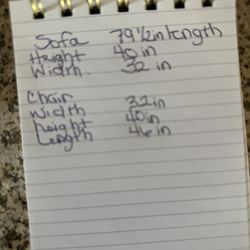 Sofa 79 1/2 in length
Height 40 in
Width 32 in
Chair
Width 32 in
height 40 in
Length 46 in